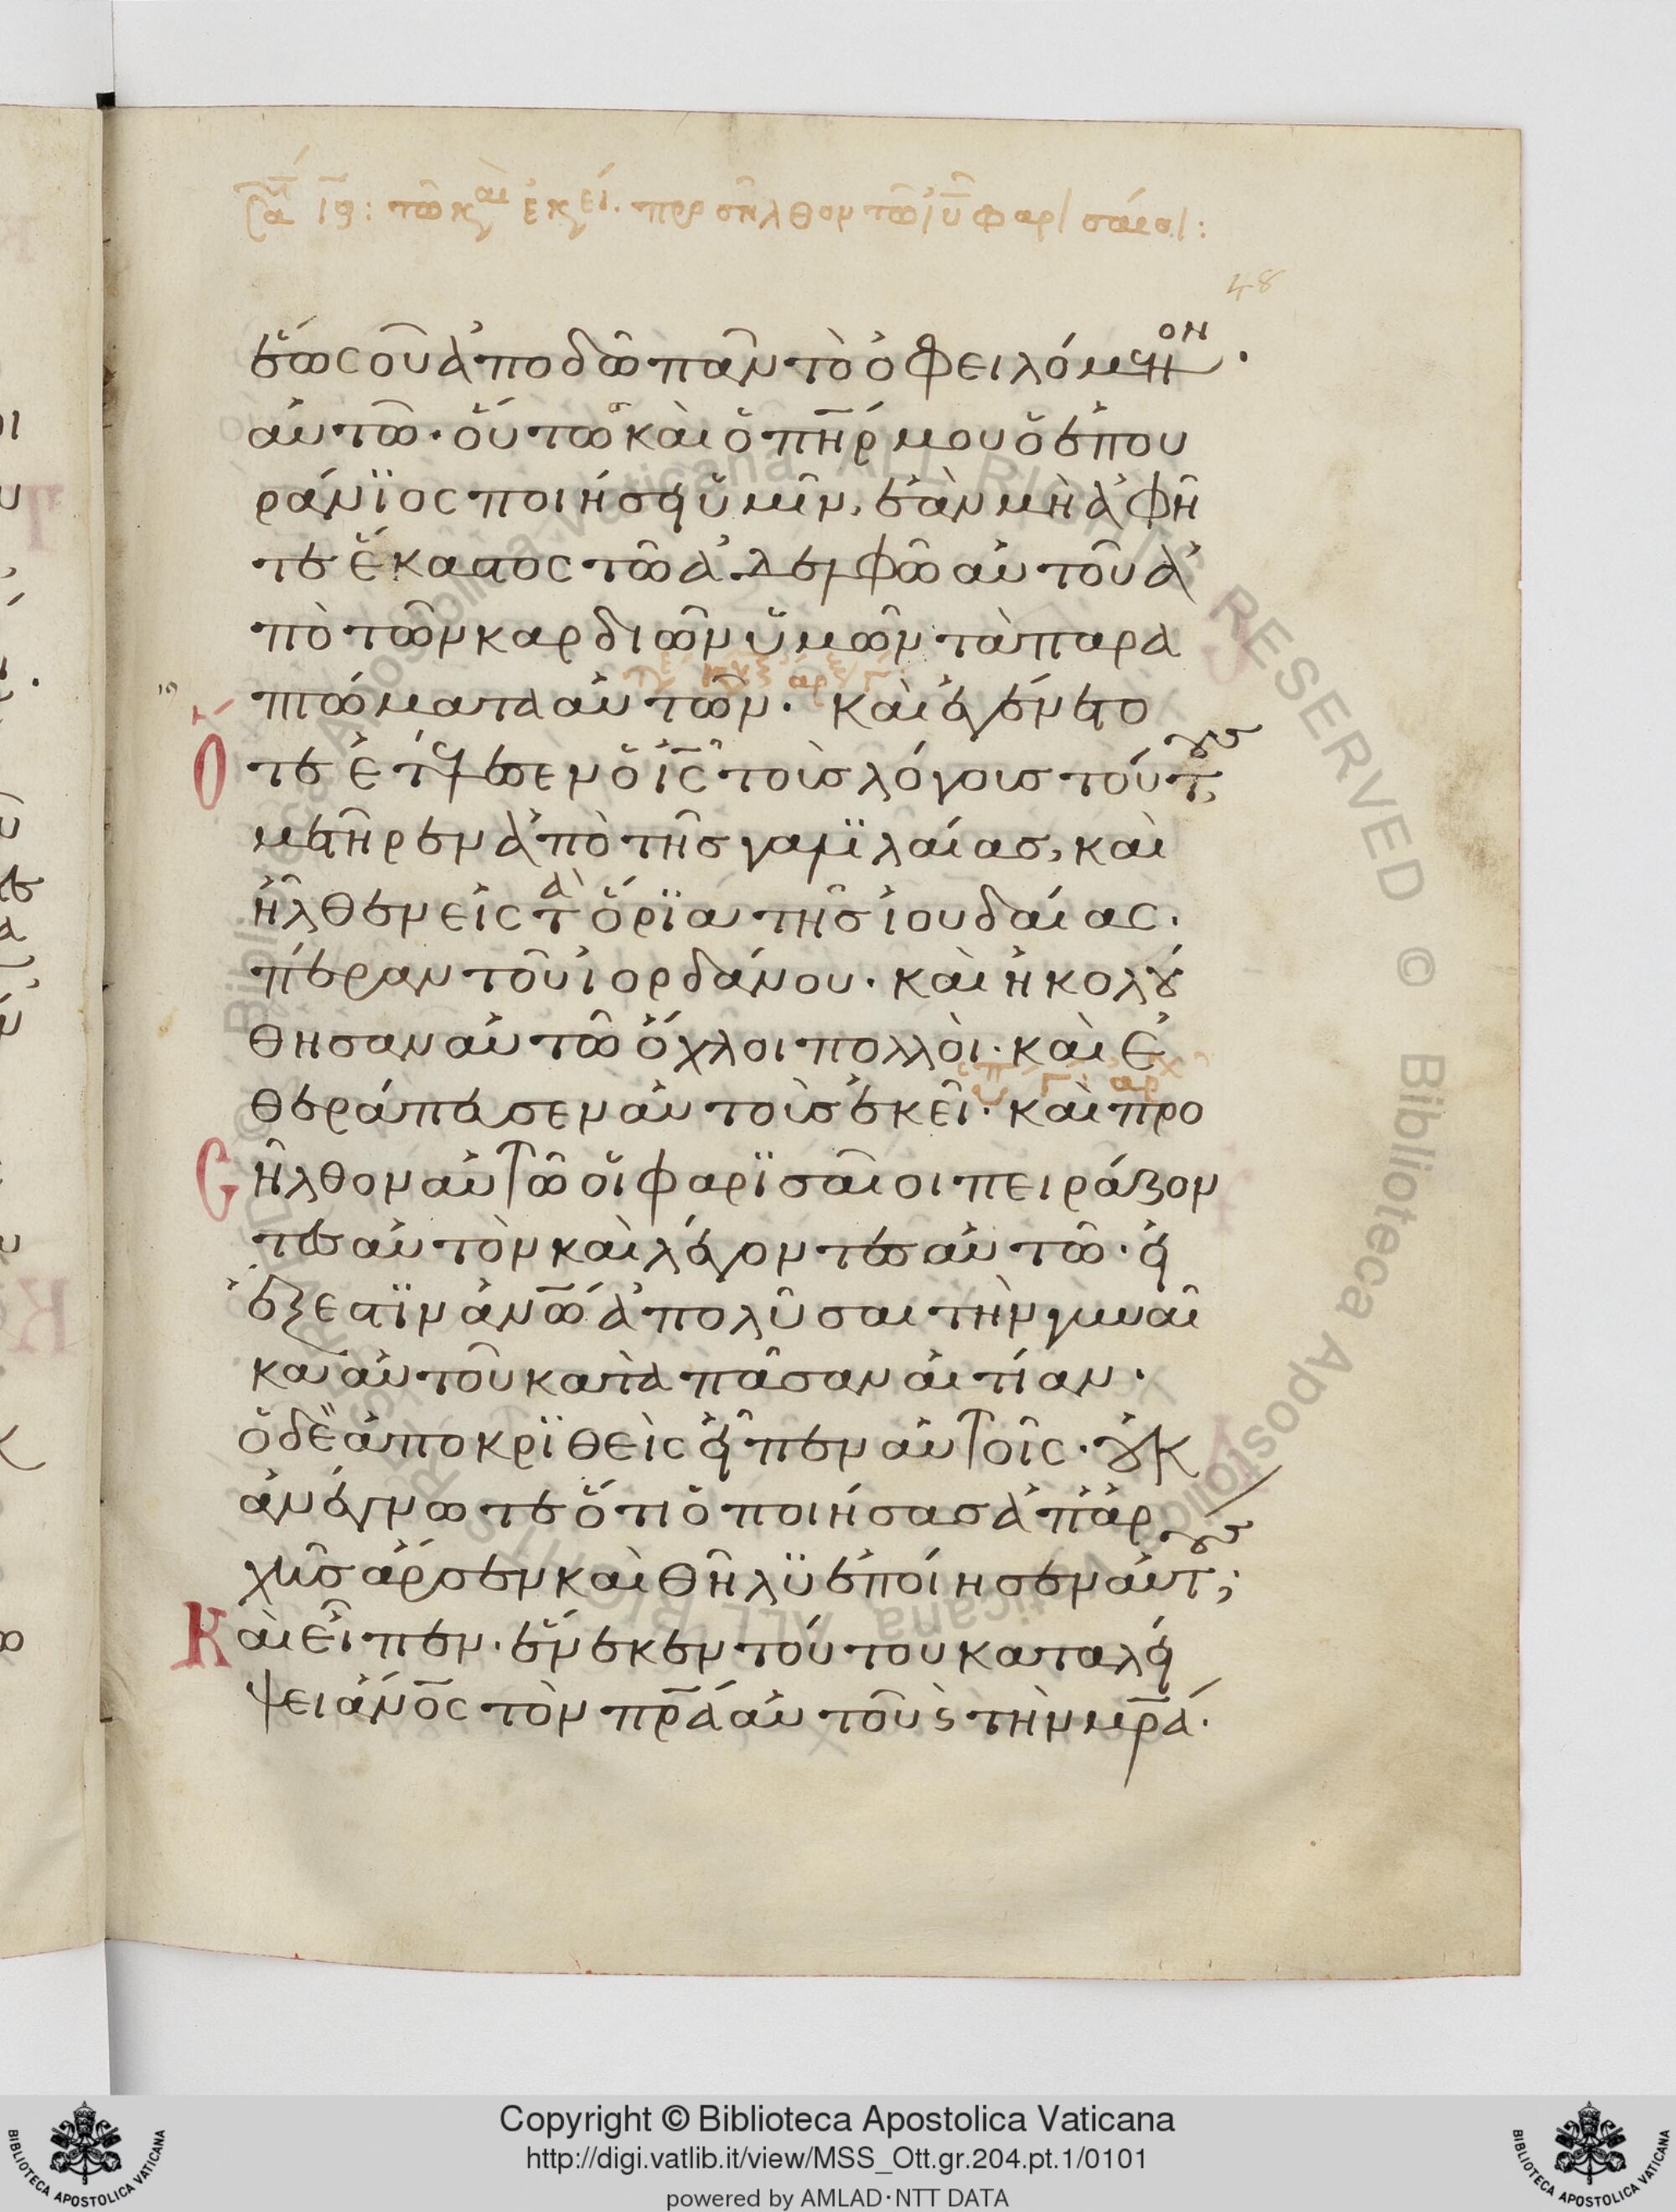 τῶ κ αι ἐκεί. προσῆλθον τῶ ιυ φαρισάιοι:
48
ἕως οὗ ἀποδῶ πᾶν τὸ ὀφειλόμενον.
αὐτῶ. οὕτω καὶ ὁ πηρ μου ὁ ἐπου
ράνϊος ποιήσει ὑμῖν, ἐὰν μὴ ἀφῆ
τε ἕκαστος τῶ ἀδελφῶ αὐτοῦ ἀ
πὸ τῶν καρδιῶν ὑμῶν τὰ παρα
πτώματα αὐτῶν. καὶ ἐγένετο
Ὅτε ἐτέλεσεν ὁ ις τοὺς λόγους τούτους,
μετῆρεν ἀπὸ τῆς γαλϊλαίας, καὶ
ἦλθεν εἰς τὰ ὅρϊα τῆς ἰουδαίας.
πέραν τοῦ ἰορδάνου. καὶ ἠκολού
θησαν αὐτῶ ὄχλοι πολλοὶ. καὶ ἐ
θεράπευσεν αὐτοὺς ἐκεῖ. καὶ προ
Σῆλθον αὐτῶ οἱ φαρϊσαῖοι πειράζον
τες αὐτὸν καὶ λέγοντες αὐτῶ. εἰ
ἔξεστϊν ἀνω ἀπολῦσαι τὴν γυναῖ
κα αὐτοῦ κατὰ πᾶσαν αἰτίαν.
ὁ δὲ ἀποκρϊθεὶς εἶπεν αὐτοῖς. οὐκ
ἀνέγνωτε ὅτι ὁ ποιήσας ἀπ' ἀρ
χῆς ἄρσεν καὶ θῆλϋ ἐποίησεν αὐτούς;
Καὶ εἶπεν. ἕνεκεν τούτου καταλεί
ψει ἄνος τὸν πρα αὐτοῦ ϛ τὴν μρα.
Copyright © Biblioteca Apostolica Vaticana
http://digi.vatlib.it/view/MSS_Ott.gr.204.pt.1/0101
powered by AMLAD·NTT DATA
BIBLIOTECA APOSTOLICA VATICANA
BIBLIOTECA APOSTOLICA VATICANA